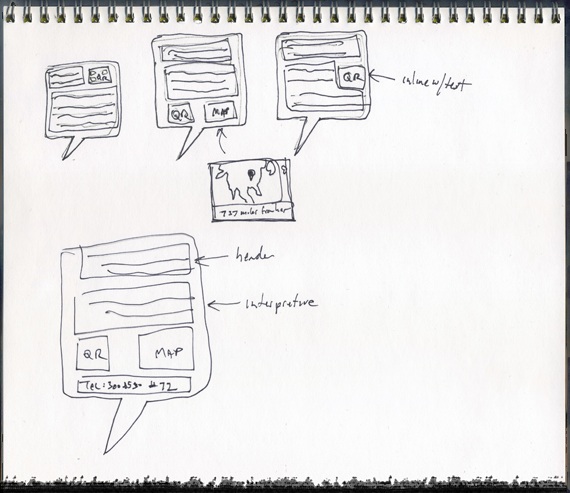 QR
QR
MAP
QR
inline w/ text
727 miles from her
header
interpretive
QR
MAP